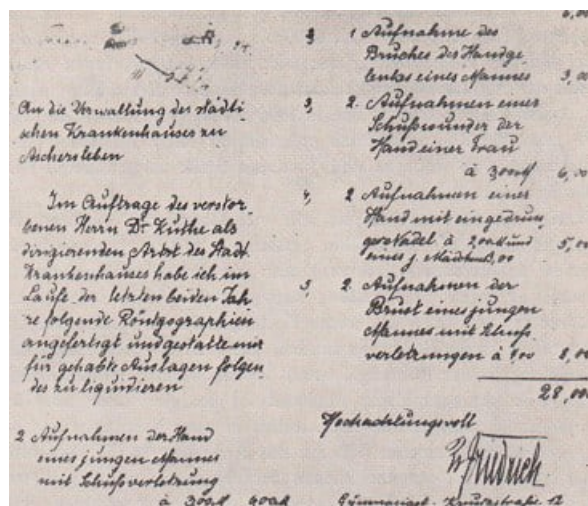 An die Verwaltung des städti-
schen Krankenhauses zu
Aschersleben
Im Auftrage des verstor-
benen Herrn Dr. Kuthe als
dirigierenden Arzt des städt.
Krankenhauses habe ich im
Laufe der letzten beiden Jah-
re folgende Röntgographien
angefertigt und gestatte mir
für gehabte Auslagen folgen-
des zu liquidieren
2 Aufnahmen der Hand
eines jungen Mannes
mit Schußverletzung
à 3,00 M
6,00
2, 1 Aufnahme des
Bruches des Handge-
lenks eines Mannes 3,00
3, 2. Aufnahmen einer
Schußwunde der
Hand einer Frau
à 3,00 M 6,00
4, 2 Aufnahmen einer
Hand mit eingedrun-
gener Nadel à 2,00 M und
eines j. Mädchens 5,00
5, 2. Aufnahmen der
Brust eines jungen
Mannes mit Schuß
verletzungen à 4,00 8,00
28,00
Hochachtungsvoll
Friedrich